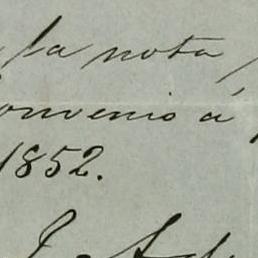 la nota
onvenio á
1852.